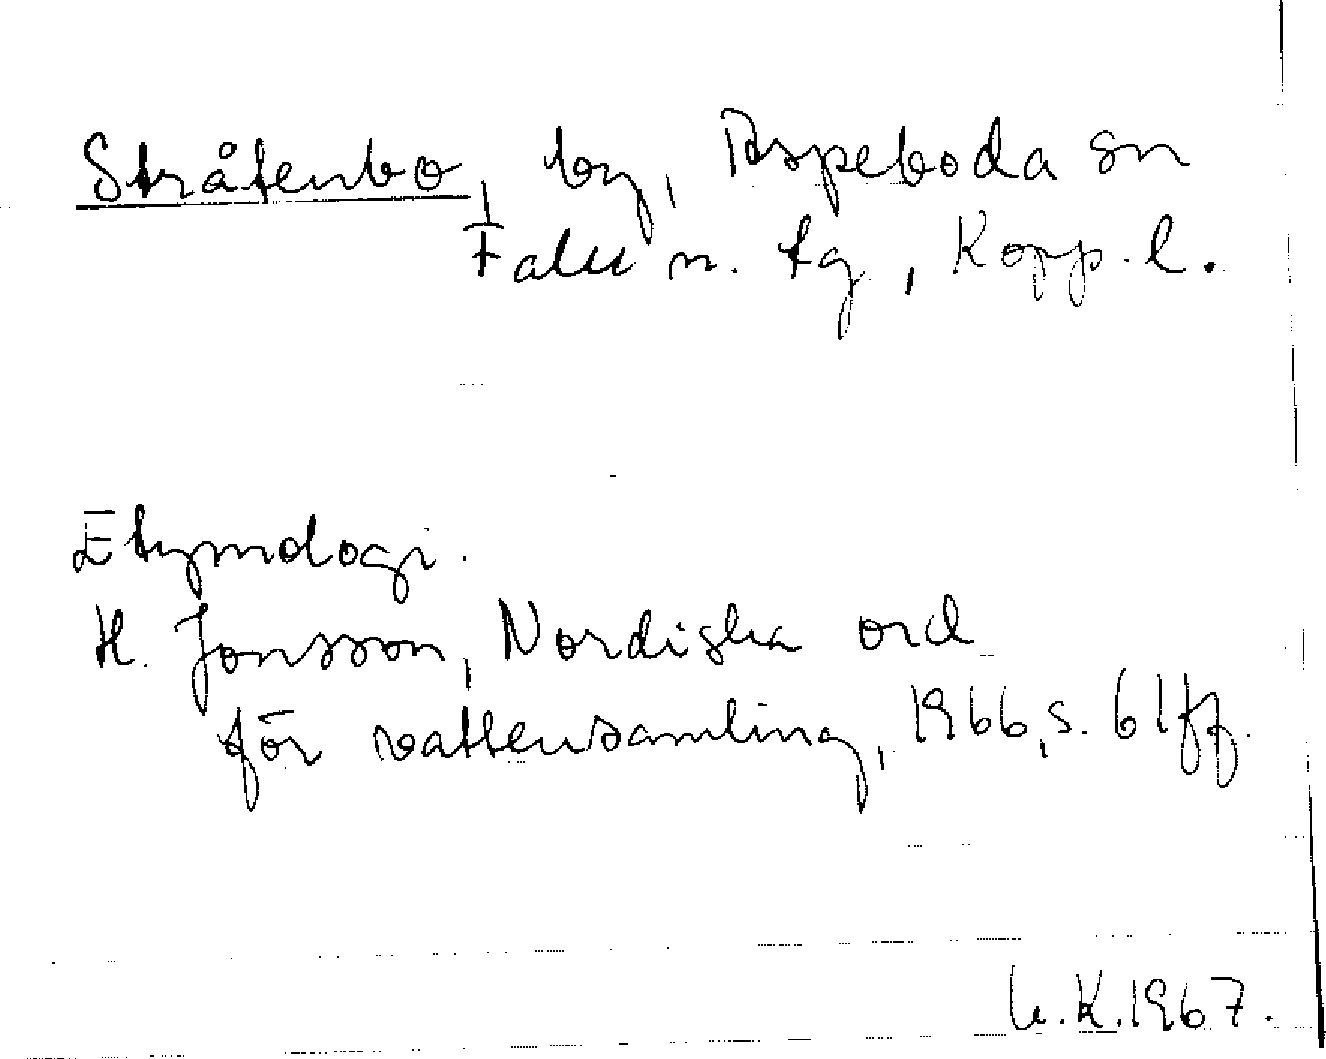 Stråtenbo, by, Torpeboda sn
Falu n. tg, Kopp. l.
Etymologi.
H. Jonsson, Nordiska ord
för vattensamling, 1966, s. 61 ff.
K. 1967.